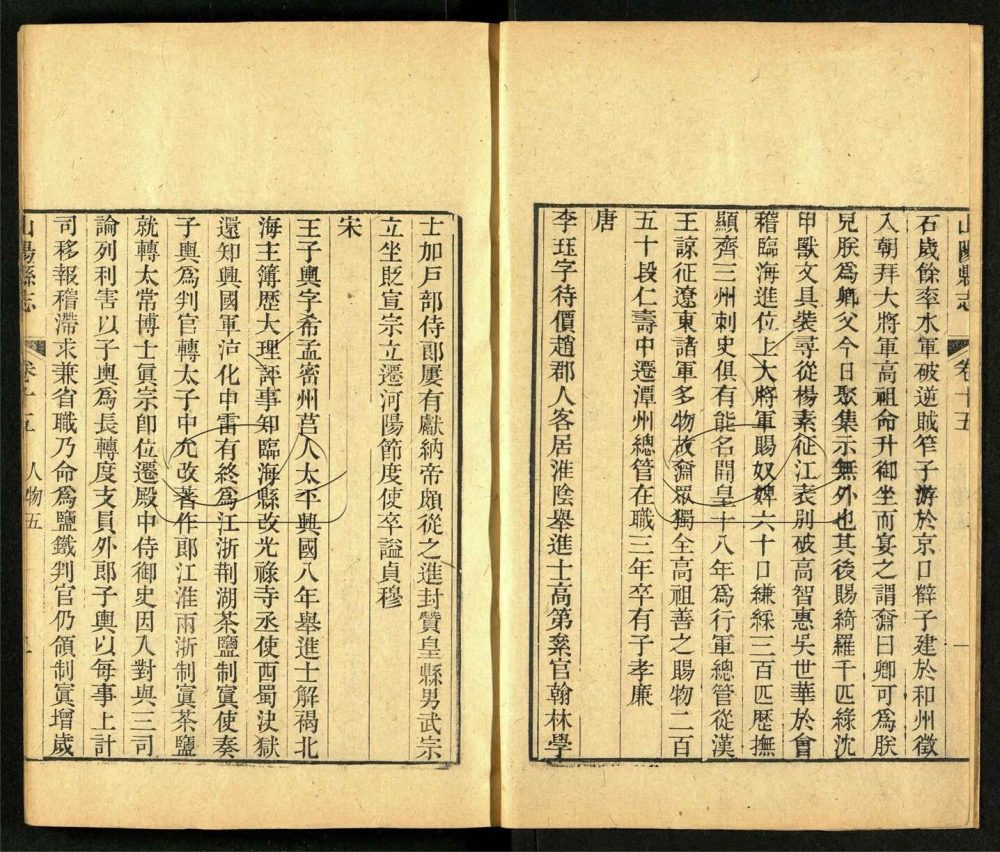 山陽縣志 卷十五 一
石歲餘率水軍破逆賊笮子游於京口辥子建於和州徵
入朝拜大將軍高祖命升御坐而宴之謂奫曰卿可爲朕
兒朕爲卿父今日聚集示無外也其後賜綺羅千匹綠沈
甲獸文具裝尋從楊素征江表別破高智惠吳世華於會
稽臨海進位上大將軍賜奴婢六十口縑綵三百匹歷撫
顯齊三州刺史俱有能名開皇十八年爲行軍總管從漢
王諒征遼東諸軍多物故奫眾獨全高祖善之賜物二百
五十段仁壽中遷潭州總管在職三年卒有子孝廉
唐
李珏字待價趙郡人客居淮陰舉進士高第絫官翰林學
士加戶部侍郎屢有獻納帝頗從之進封贊皇縣男武宗
立坐貶宣宗立遷河陽節度使卒謚貞穆
宋
王子輿字希孟密州莒人太平興國八年舉進士解褐北
海主簿歷大理評事知臨海縣改光祿寺丞使西蜀決獄
還知興國軍淳化中雷有終爲江浙荆湖茶鹽制寘使奏
子輿爲判官轉太子中允改著作郎江淮兩浙制寘茶鹽
就轉太常博士眞宗卽位遷殿中侍御史因入對與三司
論列利害以子輿爲長轉度支員外郎子輿以每事上計
司移報稽滯求兼省職乃命爲鹽鐵判官仍領制寘增歲
山陽縣志 卷十五 人物五